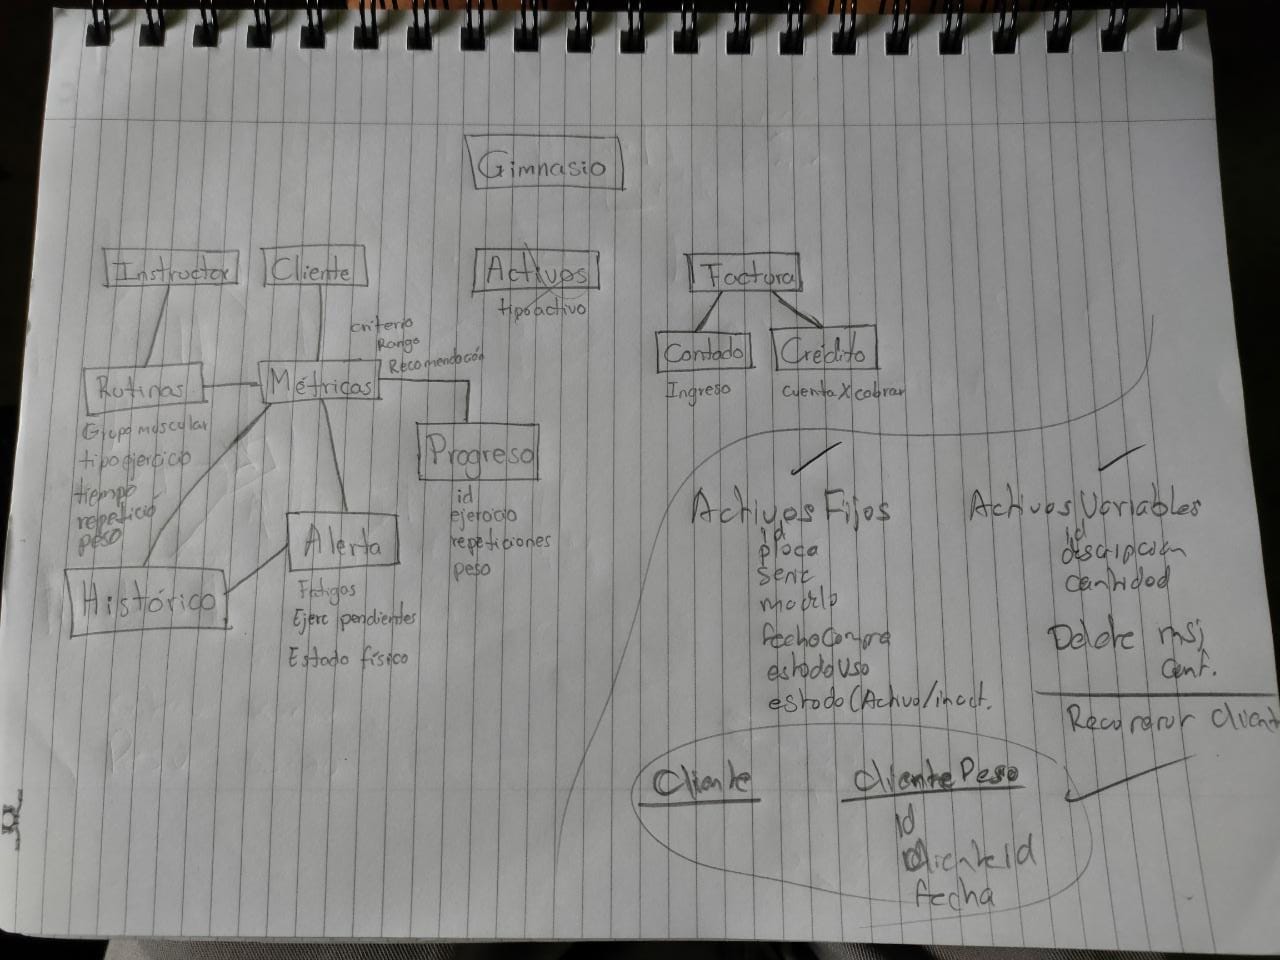 Gimnasio
Instructor
Cliente
Activos
tipo activo
Factura
Contado
Ingreso
Crédito
cuentaXcobrar
criterio
Rango
Recomendación
Rutinas
Grupo muscular
tipo ejercicio
tiempo
repetició
peso
Métricas
Progreso
id
ejercicio
repeticiones
peso
Histórico
Alerta
Fatigas
Ejerc pendientes
Estado físico
Activos Fijos
id
placa
serie
modelo
fechaCompra
estadoUso
estado (Activo/inact.
Activos Variables
id
descripción
cantidad
Delete msj
Recuperar Client
Cliente
ClientePeso
id
ClienteId
fecha